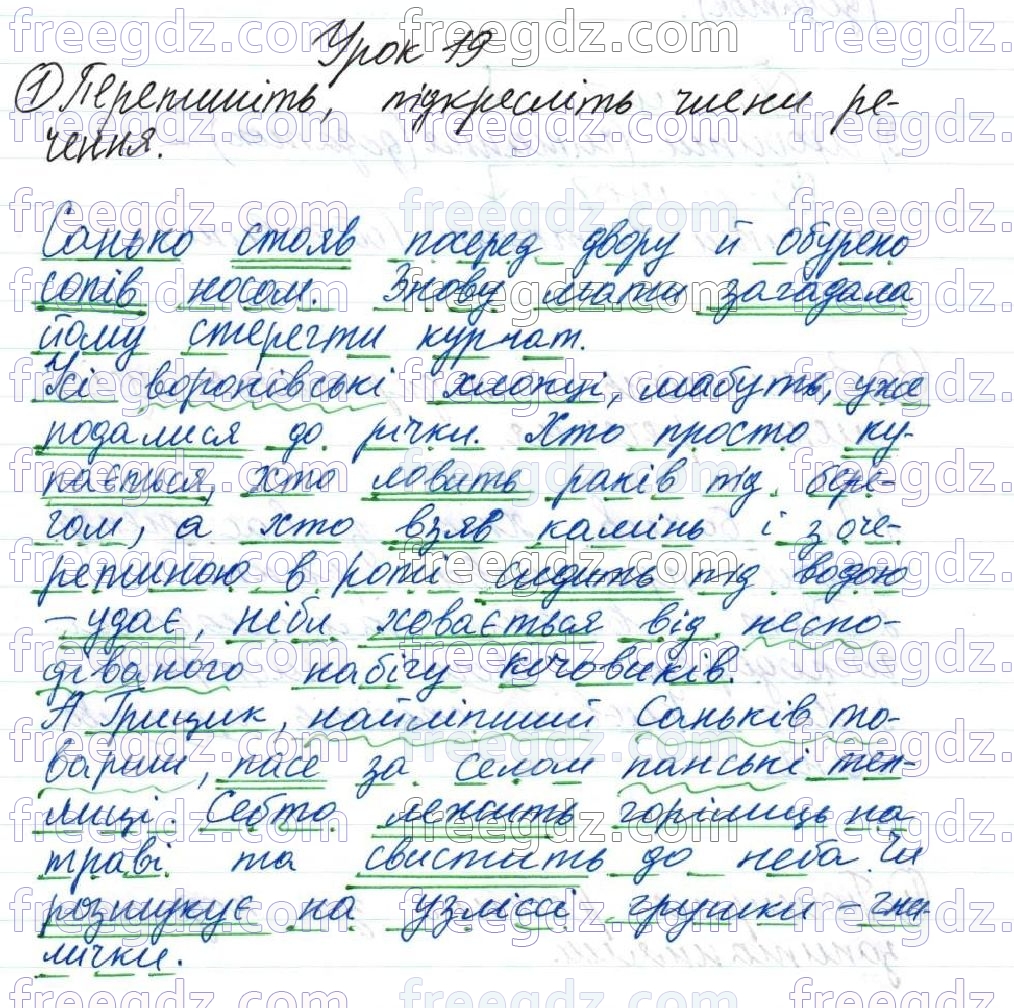 Урок 19
① Перепишіть, підкресліть члени ре-
чення.
Санько стояв посеред двору й обурено
сопів носом. Знову мати загадала
йому стерегти курчат.
Усі воронівські хлопці, мабуть, уже
подалися до річки. Хто просто ку-
пається, хто ловить раків під бере-
гом, а хто взяв камінь і з оче-
ретиною в роті сидить під водою
– удає, ніби ховається від неспо-
діваного набігу кочовиків.
А Грицик, найліпший Саньків то-
вариш, пасе за селом панські теп-
лиці. Себто лежить горілиць на
траві та свистить до неба. Чи
розшукує на узліссі грушки – гни-
лички.